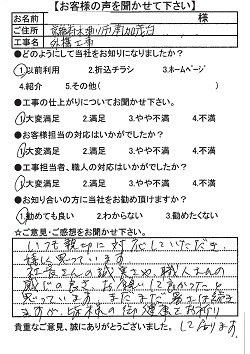 【お客様の声を聞かせて下さい】
お名前 様
ご住所
工事名 外構工事
●どのようにして当社をお知りになりましたか?
1.以前利用 2.折込チラシ 3.ホームページ
4.紹介 5.その他( )
●工事の仕上がりについてお聞かせ下さい。
1.大変満足 2.満足 3.やや不満 4.不満
●お客様担当の対応はいかがでしたか?
1.大変満足 2.満足 3.やや不満 4.不満
●工事担当者、職人の対応はいかがでしたか?
1.大変満足 2.満足 3.やや不満 4.不満
●お知り合いの方に当社をお勧め頂けますか?
1.勧めても良い 2.わからない 3.勧めたくない
☆ご意見・ご感想をお聞かせ下さい。
いつも親切に対応していただき
嬉しく思っています
社長さんの誠実さや、職人さんの
感じの良さ、お願いして良かったと
思っています。まだまだ暑さは続き
ますが、皆様の御健康をお祈り
しております。
貴重なご意見、誠にありがとうございました。